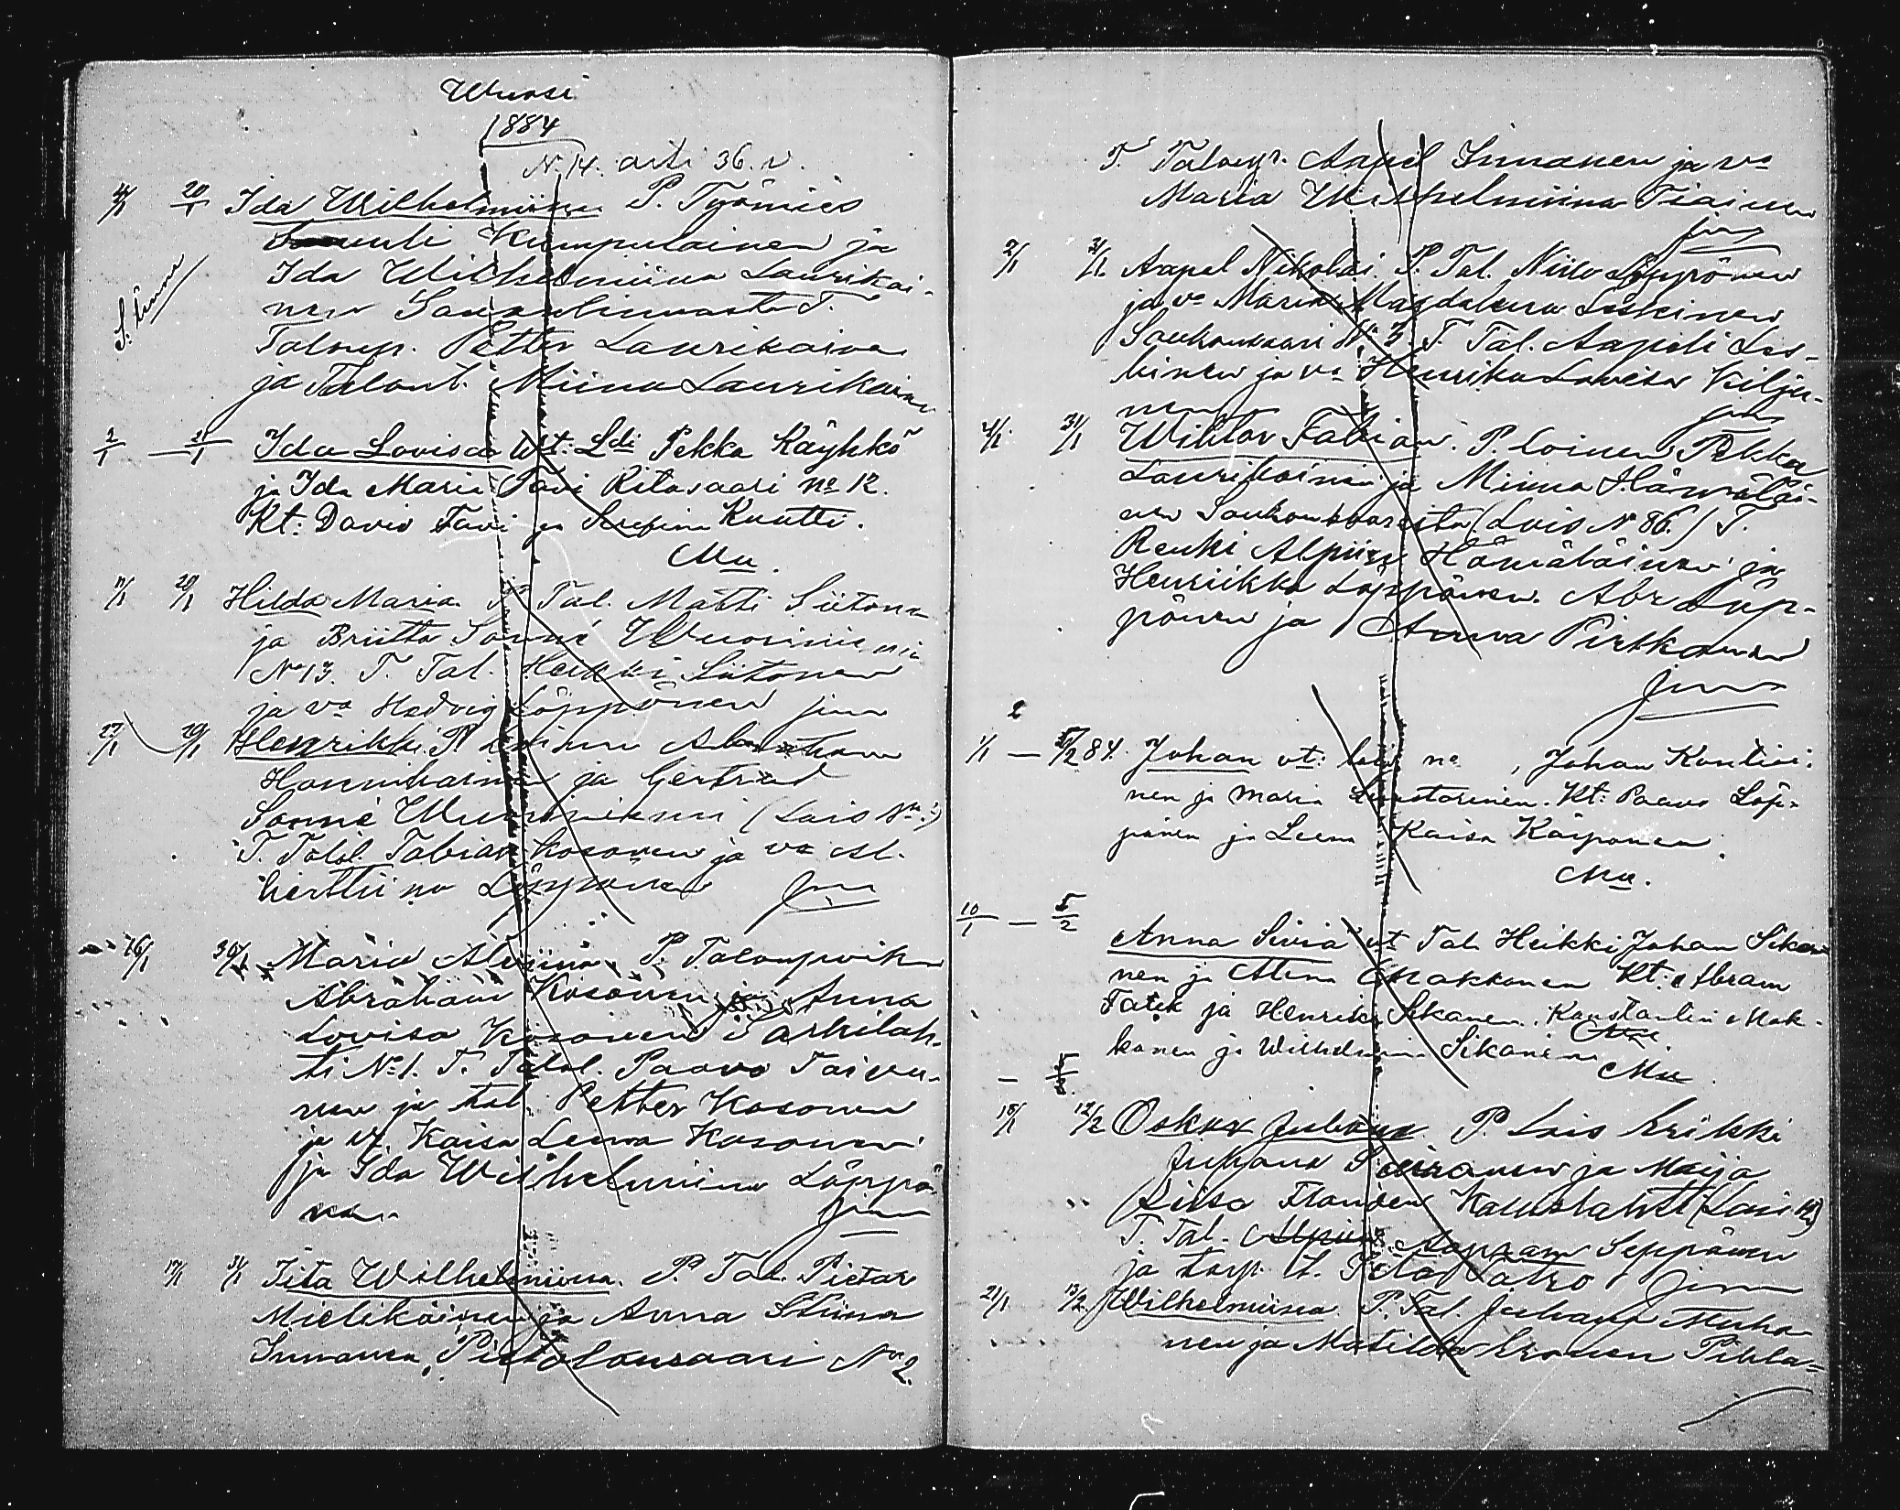 Wuosi
1884
N. 14. äiti 36. v.
4/1 20/1 Ida Wilhelmiina P. Työmies
Samuli Kumpulainen ja
Ida Wilhelmiina Laurikai-
nen Savonlinnasta T.
S. linna
Taloup. Petter Laurikainen
ja Talont. Miina Laurikainen
2/1 — 21/1 Ida Lovisa vt: Ldi Pekka Käyhkö
ja Ida Maria Tavi Ritosaari no 12.
Kt: David Tavi ja Serefina Kuutti.
Mu.
11/1 20/1 Hilda Maria. P. Tal. Matti Siitonen
ja Briitta Sonné Wuoriniemi
No 13. T. Tal. Heikki Siitonen
ja va Hedvig Löppönen
27/1 29/1 Henrikki. P. Loinen Abraham
Hannikainen ja Gertrud
Sonné Wuoriniemi (Lois No. )
T. Talol. Fabian Kosonen ja va Al-
berttiina Löppönen
16/1 30/1 Maria Alviina. P. Taloupoika
Abraham Kosonen ja Anna
Lovisa Kosonen
ti No 1. T. Talol. Paavo Taivai-
nen ja tal. Petter Kosonen
ja vt. Kaisa Leena Kosonen
ja Ida Wilhelmiina Löppö-
nen.
17/1 31/1 Iita Wilhelmiina. P. Tal. Pietar
Mielikäinen ja Anna Stiina
Immonen, Pietolansaari No 2.
T. Taloup. Aapel Immonen ja va
Maria Wilhelmiina Tiainen
2/1 31/1 Aapel Nikolai. P. Tal. Niilo Löppönen
ja va Maria Magdaleena Leskinen
Saukonsaari No 3 T. Tal. Aapeli Les-
kinen ja va Henrika Lovisa Kilju-
nen
4/1 31/1 Wihtor Fabian. P. loinen Pekka
Laurikainen ja Miina Hämäläi-
nen Saukonsaaresta (Lois N 86.) T.
Renki Alpiini Hämäläinen ja
Henriikka Löppönen. Abr Löp-
pönen ja Anna Pirkkonen
2
1/1 — 5/2 84. Johan vt: lois no , Johan Kontiai-
nen ja Maria Kt: Paavo Löp-
pönen ja Leena Kaisa Karponen.
Mu.
10/1 — 5/2
Anna Siviä vt Tal. Heikki Johan Sika-
nen ja Alma Makkonen Kt: Abram
Tatek ja Henrika Sikanen, Konstantin Mak-
konen ja Wilhelmiina Sikanen
Mu
15/1 12/2 Oskar Juhana. P. Lois Erikki
Juhana Sairanen ja Maija
Liisa Flanden Kallislahti (Lois 12)
T. Tal. Aapram Seppänen
ja torp. t.
21/1 13/2 Wilhelmiina. P. Tal. Juhana Muho-
nen ja Matilda Eronen Pihla-